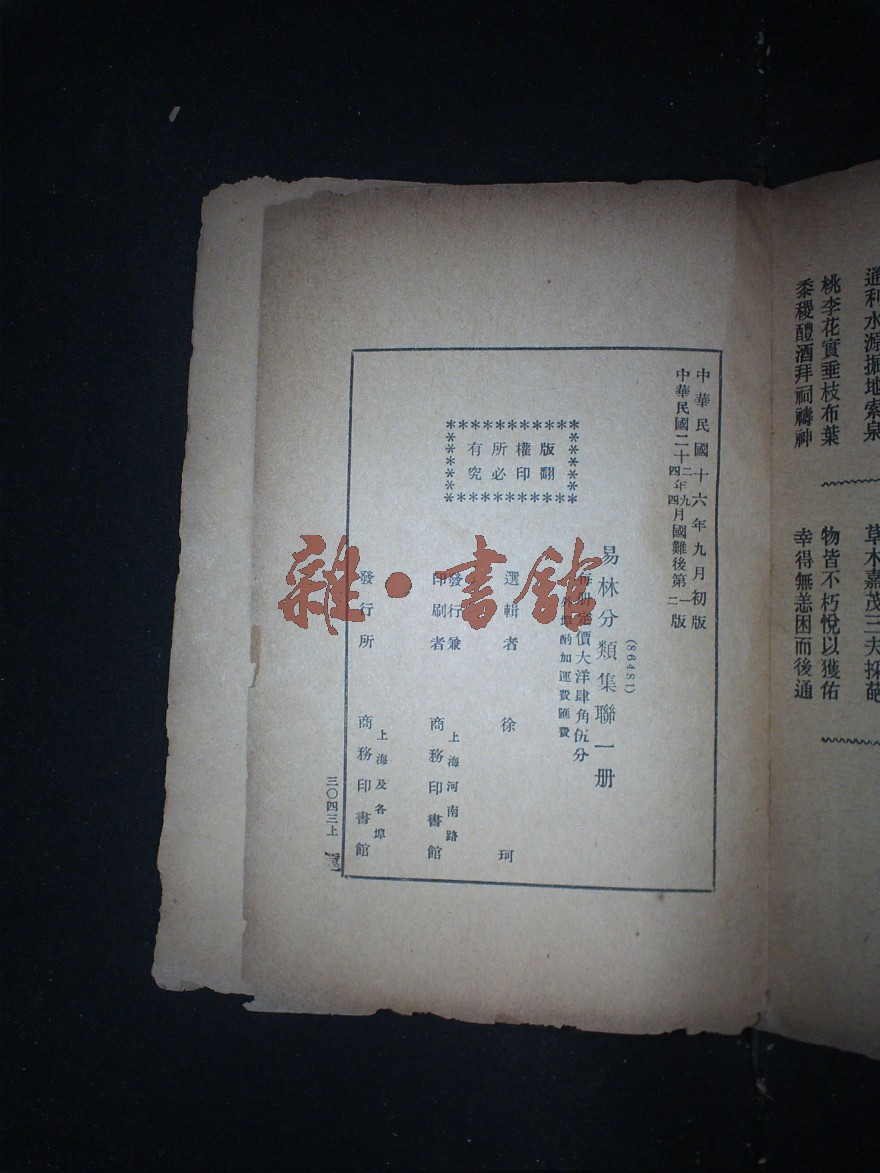 通利水源掘地索泉
桃李花實垂枝布葉
黍稷醴酒拜祠禱神
草木嘉茂三夫採葩
物皆不朽悅以獲佑
幸得無恙困而後通
中華民國十六年九月初版
中華民國二十二年九月國難後第一版
四 四 二
(86481)
易林分類集聯一册
每册定價大洋肆角伍分
外埠酌加運費匯費
版權所有
翻印必究
選輯者 徐珂
發行兼
印刷者
上海河南路
商務印書館
發行所
上海及各埠
商務印書館
三〇四三上
雜·書館